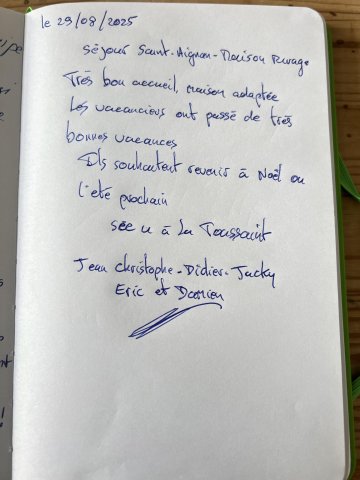 le 29/08/2025
séjour Saint-Aignan-Maison Rivage
Très bon accueil, maison adaptée
Les vacanciers ont passé de très
bonnes vacances
Ils souhaitent revenir à Noël ou
l'été prochain
see u à La Toussaint
Jean Christophe-Didier-Jacky
Eric et Damien